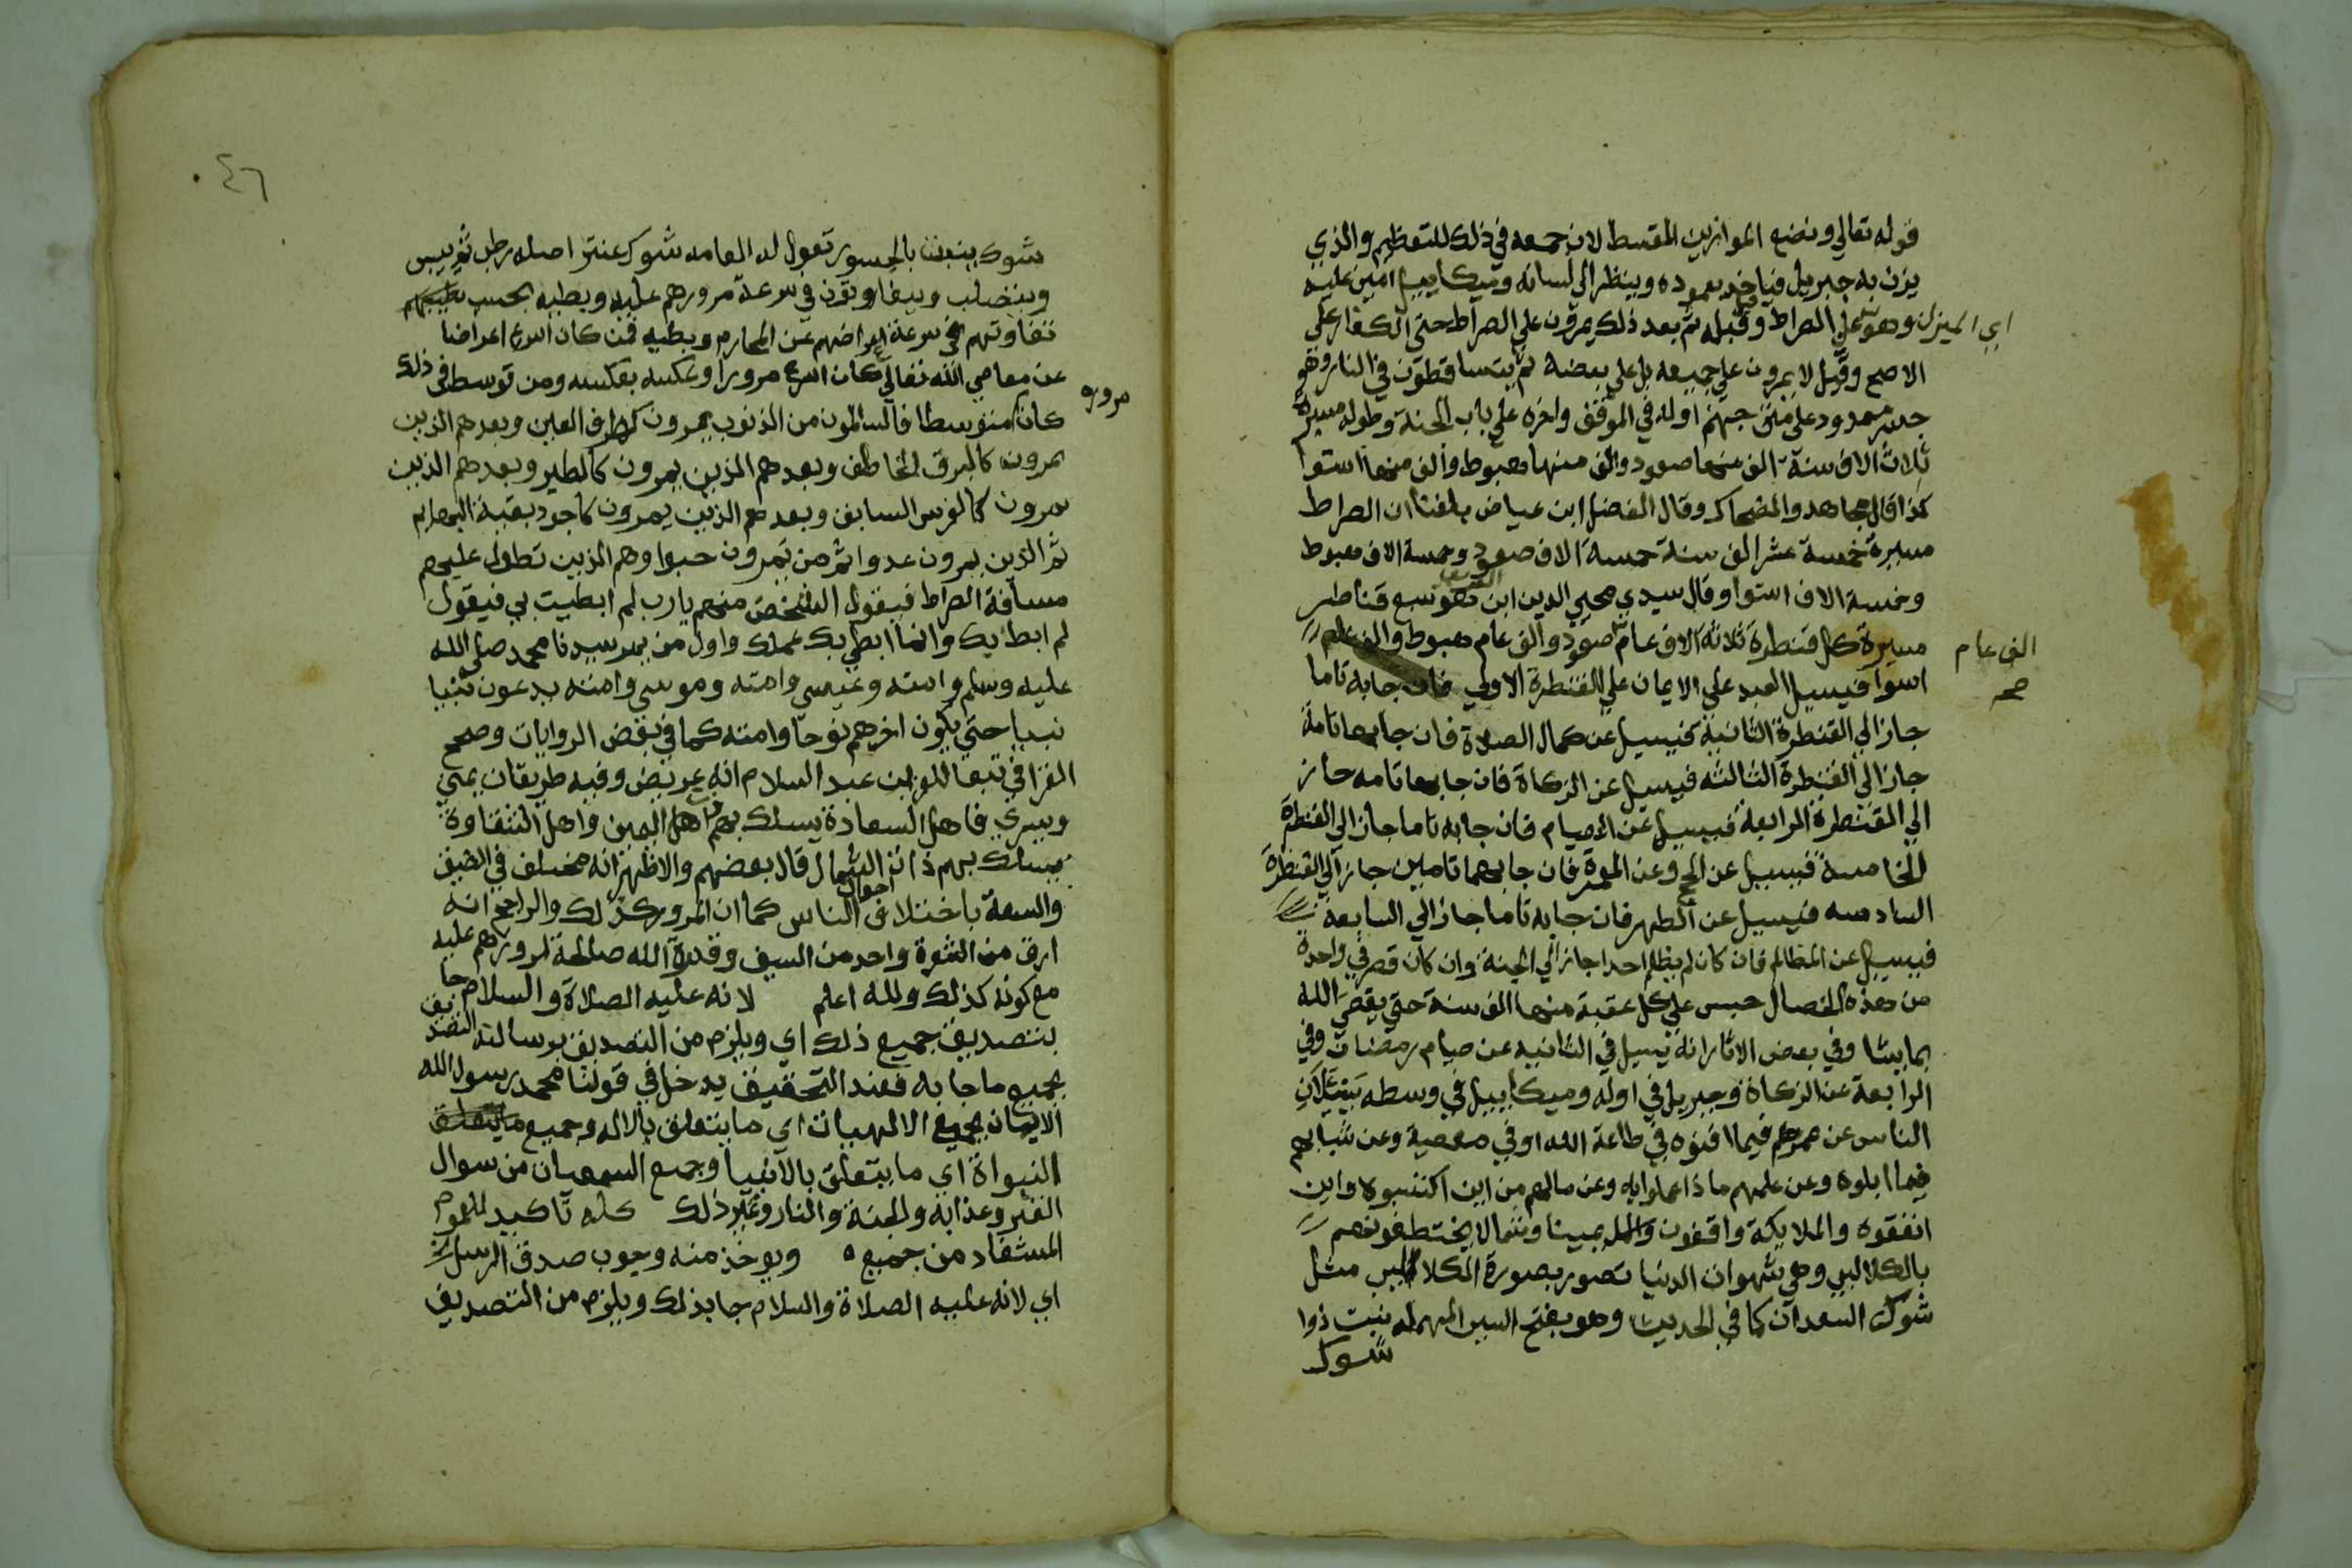 قوله تعالي ونضع الموازين القسط لان جمعه في ذلك للتعظيم والذي
يزن به جبريل فياخذ بعموده وينظر الي لسانه وميكاييل امين عليه
اي الميزان وهو علي الصراط وقبله ثم بعد ذلك يمرون علي الصراط حتي الكفار علي
الاصح وقيل لا يمرون علي جميعه بل علي بعضه ثم يتساقطون في النار وهو
جسر ممدود علي متن جهنم اوله في الموقف واخره علي باب الجنة وطوله مسيرة
ثلاث الاف سنة الف منها صعود والف منها هبوط والف منها استوا
كذا قال مجاهد والضحاك وقال الفضل ابن عياض بلغنا ان الصراط
مسيرة خمسة عشر الف سنة خمسة الاف صعود وخمسة الاف هبوط
وخمسة الاف استوا وقال سيدي محيي الدين ابن العربي هو سبع قناطر
مسيرة كل قنطرة ثلاثة الاف عام صعود والف عام هبوط والف عام
الف عام
صح
استوا فيسيل العبد علي الايمان علي القنطرة الاولي فان جا به تاما
جاز الي القنطرة الثانية فيسيل عن كمال الصلاة فان جا بها تامة
جاز الي القنطرة الثالثه فيسيل عن الزكاة فان جا بها تامه جاز
الي القنطرة الرابعة فيسيل عن الصيام فان جا به تاما جاز الي القنطرة
الخامسة فيسيل عن الحج وعن العمرة فان جا بهما تامين جاز الي القنطرة
السادسه فيسيل عن الطهر فان جا به تاما جاز الي السابعة
فيسيل عن المظالم فان كان لم يظلم احدا جاز الي الجنة وان كان قصر في واحدة
من هذه الخصال حبس علي كل عقبة منها الف سنة حتي يقضي الله
بما يشا وفي بعض الاثار انه يسيل في الثانيه عن صيام رمضان وفي
الرابعة عن الزكاة وجبريل في اوله وميكاييل في وسطه يسيلان
الناس عن عمرهم فيما افنوه في طاعة الله او في معصية وعن شبابهم
فيما ابلوه وعن علمهم ماذا عملوا به وعن مالهم من اين اكتسبوه واين
انفقوه والملايكة واقفون يمينا وشمالا يختطفونهم
بالكلاليب وهي شهوات الدنيا تصور بصورة الكلاليب مثل
شوك السعدان كما في الحديث وهو بفتح السين المهمله نبت ذوا
شوك
٤٦
شوك ينبت بالجسور تقول له العامه شوك عنتر اصله رطب ثم ييبس
ويتصلب ويتفاوتون في سرعة مرورهم عليه وبطيه بحسب
تفاوتهم في سرعة اعراضهم عن المحارم وبطيه فمن كان اسرع اعراضا
عن معاصي الله تعالي كان اسرع مرورا وعكسه بعكسه ومن توسط في ذلك
مروره
كان متوسطا فالسالمون من الذنوب يمرون كطرف العين وبعدهم الذين
يمرون كالبرق الخاطف وبعدهم الذين يمرون كالطير وبعدهم الذين
يمرون كالفرس السابق وبعدهم الذين يمرون كاجود بقية البهايم
ثم الذين يمرون عدوا ثم من يمرون حبوا وهم الذين تطول عليهم
مسافة الصراط فيقول الشخص منهم يا رب لم ابطيت بي فيقول
لم ابطئ بك وانما ابطي بك عملك واول من يمر سيدنا محمد صلي الله
عليه وسلم وامته وعيسي وامته وموسي وامته يدعون نبيا
نبيا حتي يكون اخرهم نوحا وامته كما في بعض الروايات وصحح
القرافي تبعا للعز ابن عبد السلام انه عريض وفيه طريقان يمني
ويسري فاهل السعادة يسلك بهم اهل اليمين واهل الشقاوة
يسلك بهم ذات الشمال قال بعضهم والاظهر انه مختلف في الضيق
والسعة باختلاف احوال الناس كما ان المرور كذلك والراجح انه
ارق من الشعرة واحد من السيف وقدرة الله صالحة لمرورهم عليه
مع كونه كذلك والله اعلم لانه عليه الصلاة والسلام جا
بتصديق جميع ذلك اي ويلزم من التصديق برسالته التصديق
بجميع ما جا به فعند التحقيق يدخل في قولنا محمد رسول الله
الايمان بجميع الالهيات اي ما يتعلق بالاله وجميع
النبواة اي ما يتعلق بالانبيا وجمع السمعيات من سوال
القبر وعذابه والجنة والنار وغير ذلك كله تاكيد للعموم
المستفاد من جميع ٥ ويوخذ منه وجوب صدق الرسل الخ
اي لانه عليه الصلاة والسلام جا بذلك ويلزم من التصديق